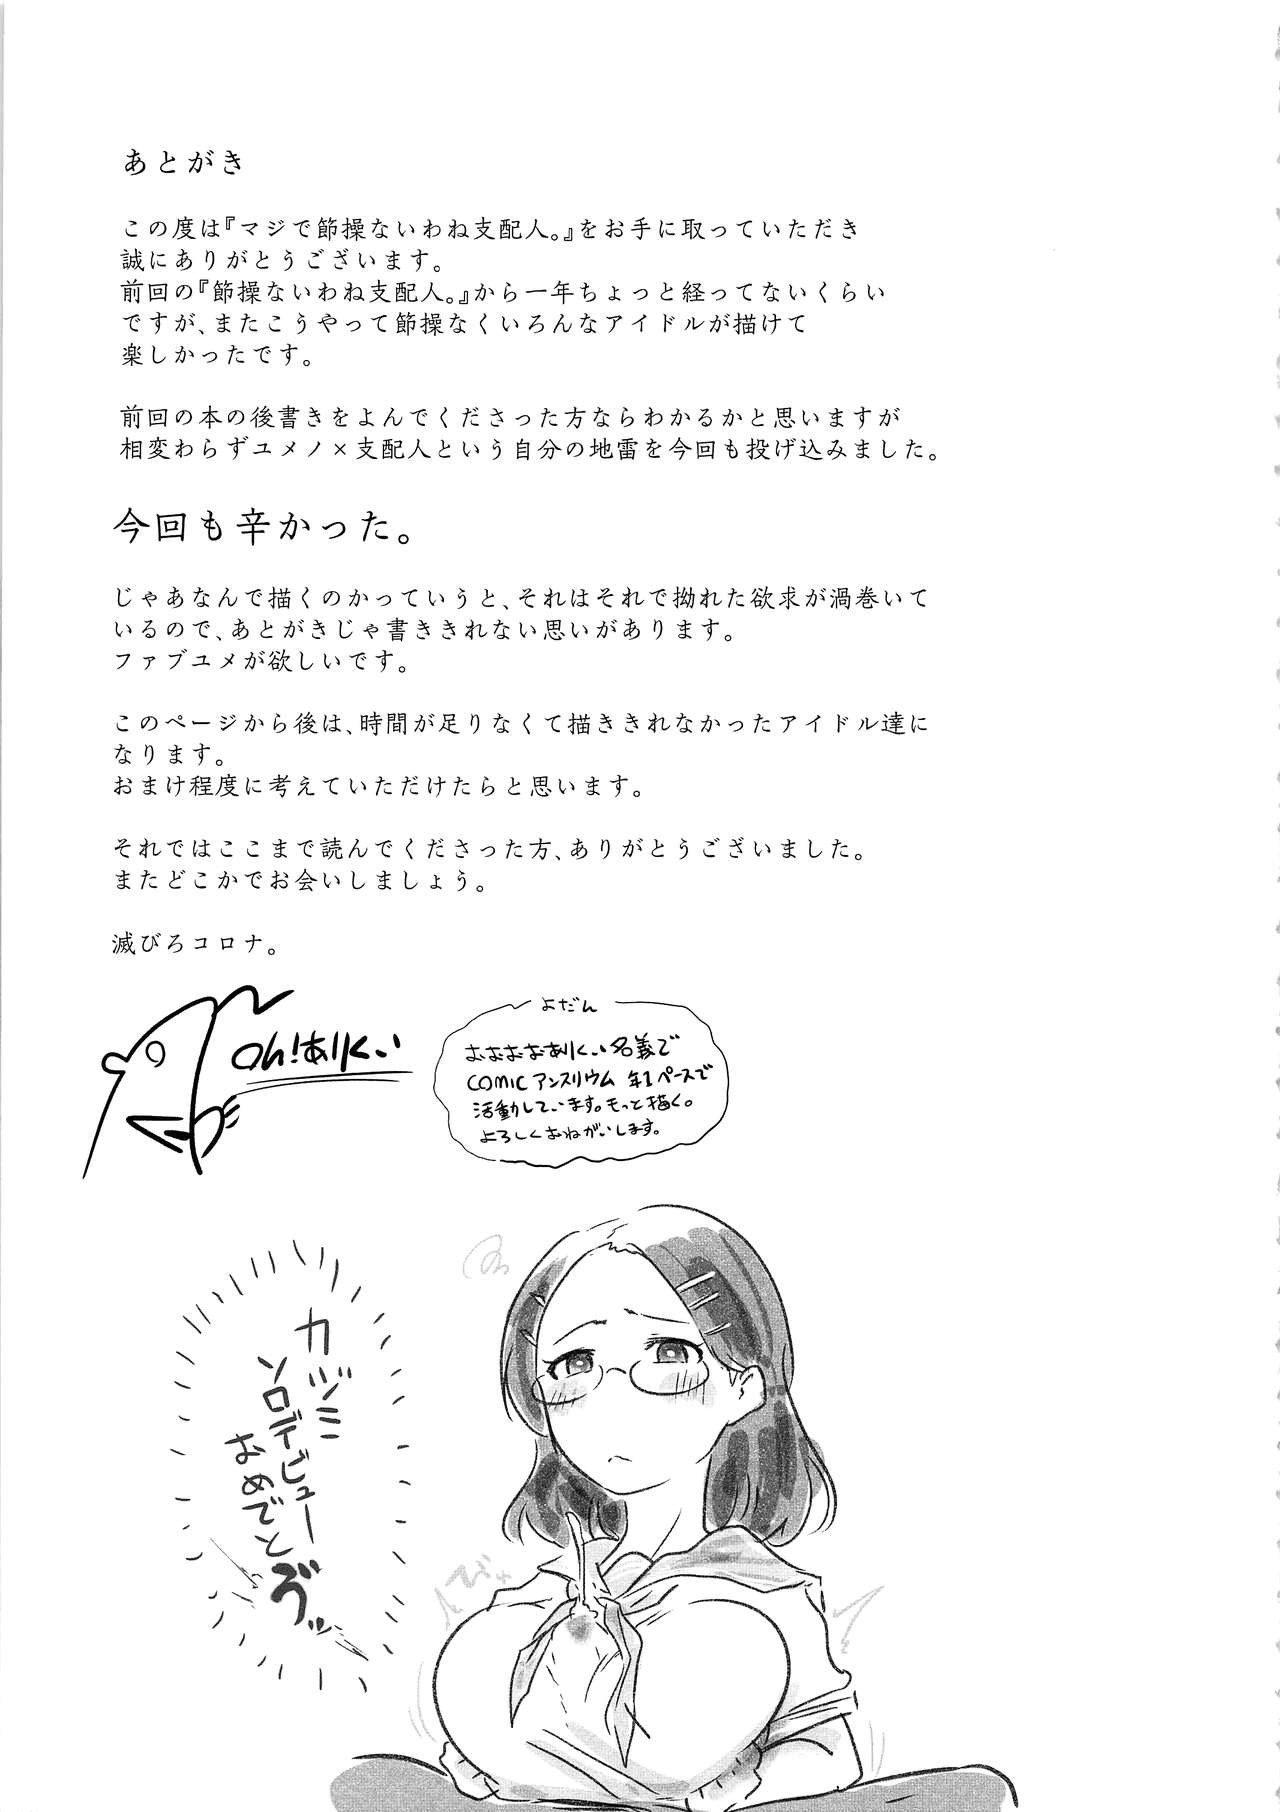 あとがき
この度は『マジで節操ないわね支配人。』をお手に取っていただき
誠にありがとうございます。
前回の『節操ないわね支配人。』から一年ちょっと経ってないくらい
ですが、またこうやって節操なくいろんなアイドルが描けて
楽しかったです。
前回の本の後書きをよんでくださった方ならわかるかと思いますが
相変わらずユメノ×支配人という自分の地雷を今回も投げ込みました。
今回も辛かった。
じゃあなんで描くのかっていうと、それはそれで拗れた欲求が渦巻いて
いるので、あとがきじゃ書ききれない思いがあります。
ファブユメが欲しいです。
このページから後は、時間が足りなくて描ききれなかったアイドル達に
なります。
おまけ程度に考えていただけたらと思います。
それではここまで読んでくださった方、ありがとうございました。
またどこかでお会いしましょう。
滅びろコロナ。
Oh!ありくい
よだん
おおおおありくい名義で
COMIC アンスリウム 年1ペースで
活動しています。もっと描く。
よろしくおねがいします。
カヅミ
ソロデビュー
おめでと